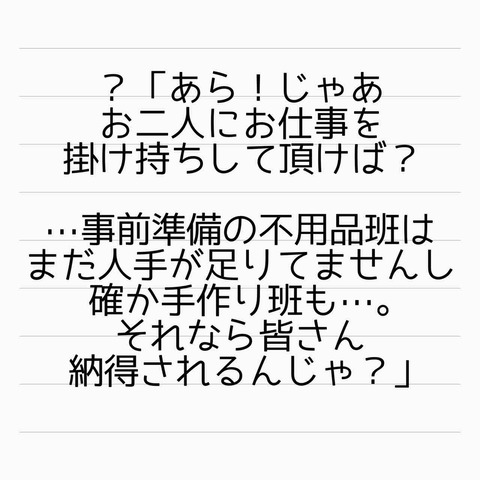 ？「あら！じゃあ
お二人にお仕事を
掛け持ちして頂けば？
…事前準備の不用品班は
まだ人手が足りてませんし
確か手作り班も…。
それなら皆さん
納得されるんじゃ？」